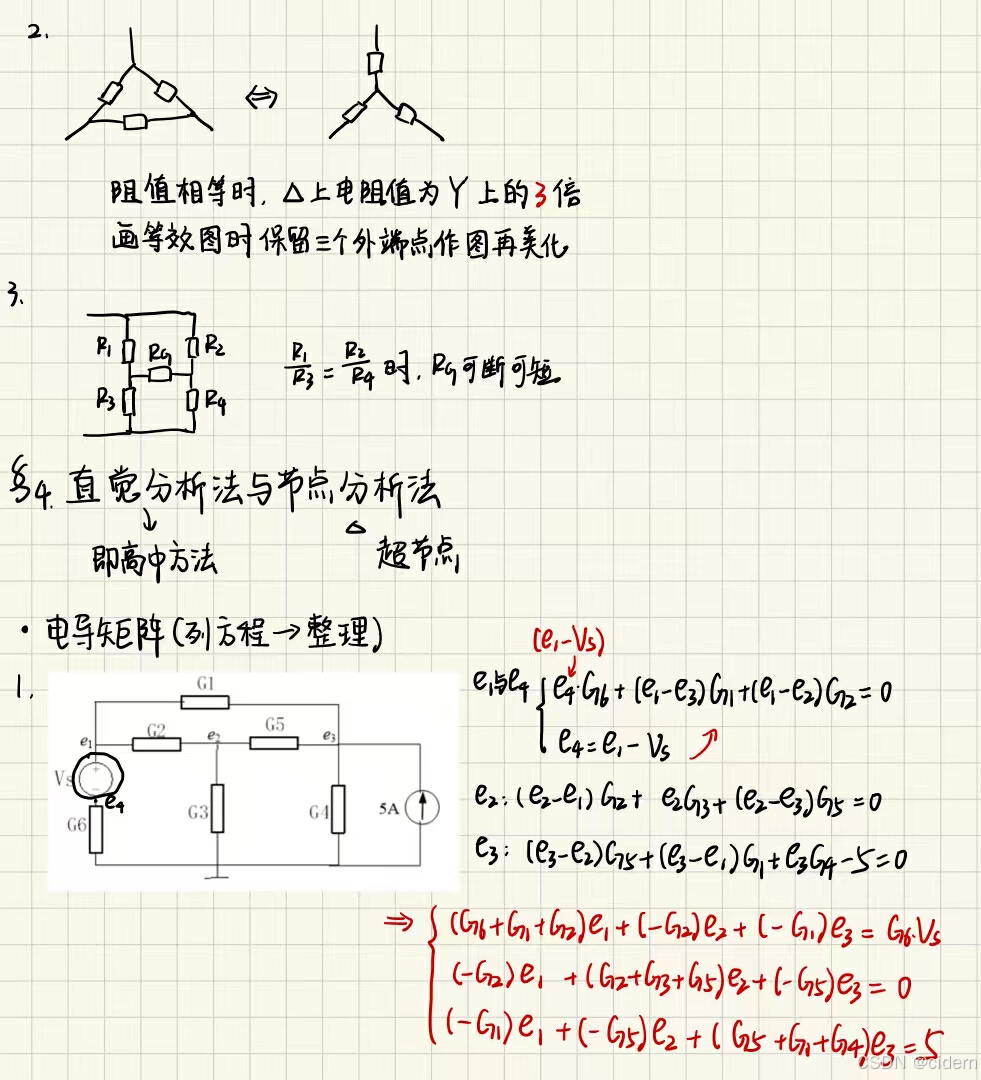 2.
阻值相等时, △上电阻值为Y上的3倍
画等效图时保留三个外端点作图再美化
3.
R₁ R₉ R₂
R₃ R₄
R₁/R₃ = R₂/R₄ 时, R₉可断可短
§4. 直觉分析法与节点分析法
即高中方法
超节点
· 电导矩阵(列方程→整理)
(e₁-Vs)
1.
G1
e₁ G2 e₂ G5 e₃
Vs
e₄
G6 G3 G4 5A
e₁与e₄ { e₄·G₆ + (e₁-e₃)G₁ + (e₁-e₂)G₂ = 0
e₄ = e₁ - Vs
e₂: (e₂-e₁)G₂ + e₂G₃ + (e₂-e₃)G₅ = 0
e₃: (e₃-e₂)G₅ + (e₃-e₁)G₁ + e₃G₄ - 5 = 0
⇒ { (G₆+G₁+G₂)e₁ + (-G₂)e₂ + (-G₁)e₃ = G₆·Vs
(-G₂)e₁ + (G₂+G₃+G₅)e₂ + (-G₅)e₃ = 0
(-G₁)e₁ + (-G₅)e₂ + (G₅+G₁+G₄)e₃ = 5
CSDN @cidern